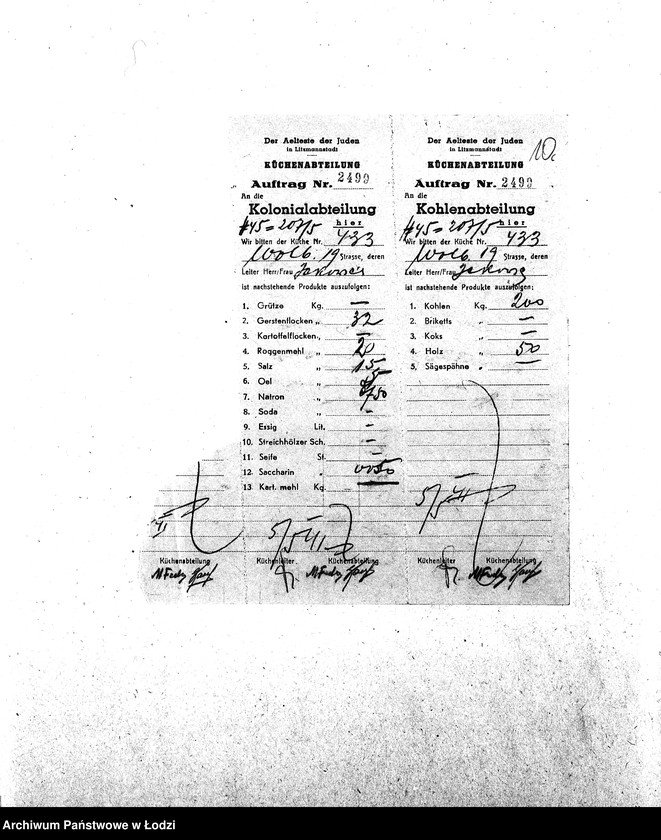 10.
Der Aelteste der Juden
in Litzmannstadt
KÜCHENABTEILUNG
Auftrag Nr. 2499
An die
Kolonialabteilung
#45=207/5 hier
Wir bitten der Küche Nr. 433
Wolb. 19 Strasse, deren
Leiter Herr/Frau
ist nachstehende Produkte auszufolgen:
1. Grütze Kg. —
2. Gerstenflocken „ 32
3. Kartoffelflocken „ —
4. Roggenmehl „ 20
5. Salz „ 1.5
6. Oel „
7. Natron „
8. Soda „ -
9. Essig Lit. -
10. Streichhölzer Sch. -
11. Seife St. -
12. Saccharin „ 0050
13. Kart. mehl Kg.
5/5 41
Küchenleiter Küchenabteilung
Der Aelteste der Juden
in Litzmannstadt
KÜCHENABTEILUNG
Auftrag Nr. 2499
An die
Kohlenabteilung
#45=207/5 hier
Wir bitten der Küche Nr. 433
Wolb. 19 Strasse, deren
Leiter Herr/Frau
ist nachstehende Produkte auszufolgen:
1. Kohlen Kg. 200
2. Briketts „ —
3. Koks „ —
4. Holz „ 50
5. Sägespähne „
5/5 41
Küchenleiter Küchenabteilung
Küchenabteilung
Archiwum Państwowe w Łodzi